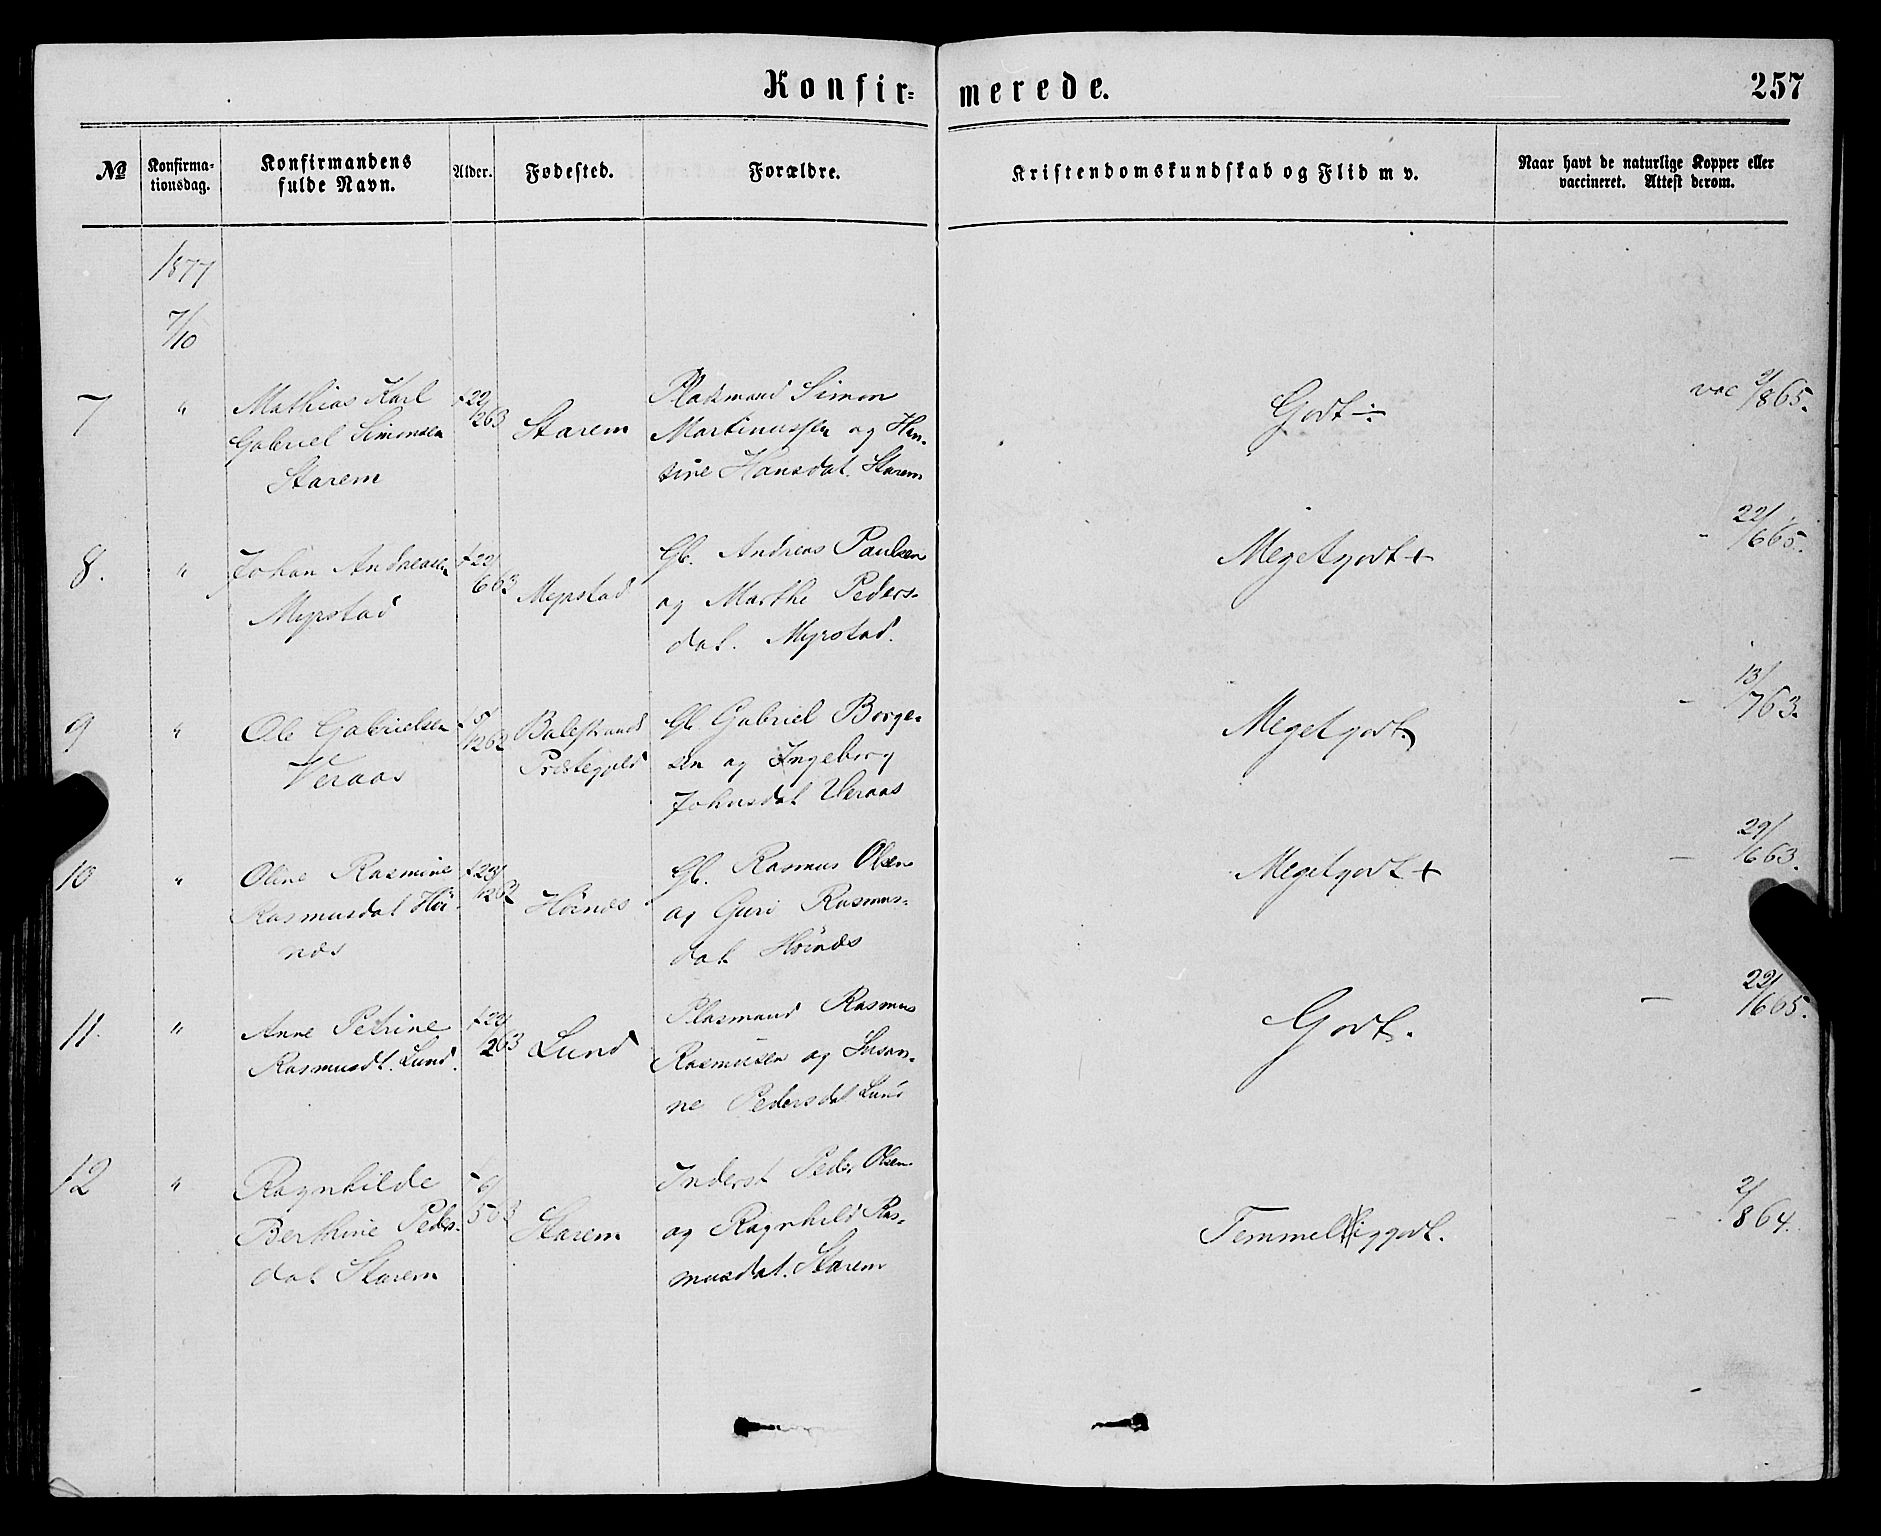 Konfir=merede.
257
No
Konfirma-
tionsdag.
Konfirmandens
fulde Navn.
Alder.
Fødested.
Forældre.
Kristendomskundskab og Flid m v.
Naar havt de naturlige Kopper eller
vaccineret. Attest derom.
1877
7/10
7 " Mathias Karl
Gabriel Simonsen
Starem
f 22/1263
Starem
Pladsmand Simon
Martinussen og Han-
sine Hansdat. Starem
Godt ÷
vac 2/865.
8. " Johan Andreasen
Myrstad
f 22/663
Myrstad
Gb. Andreas Paulsen
og Marthe Peders-
dat. Myrstad.
Megetgodt +
- 22/665.
9 " Ole Gabrielsen
Veraas
f 5/1262
Balestrands
Præstegjeld
Gb Gabriel Borge-
sen og Ingeborg
Johnsdat Veraas
Megetgodt.
- 13/763.
10 " Oline Rasmine
Rasmusdat Höi-
næs
f 23/1262
Höinæs
Gb. Rasmus Olsen
og Guri Rasmus-
dat Höinæs
Megetgodt +
- 29/663.
11. " Anne Petrine
Rasmusdt. Lund.
f 22/263
Lund
Plasmand Rasmus
Rasmusen og Susan-
ne Pedersdat Lund
Godt.
- 22/665.
12 " Ragnhilde
Berthine Peders-
dat Starem
f 6/563
Starem
Inderst Peder Olsen
og Ragnhild Ras-
musdat. Starem
Temmeliggodt.
- 2/864.